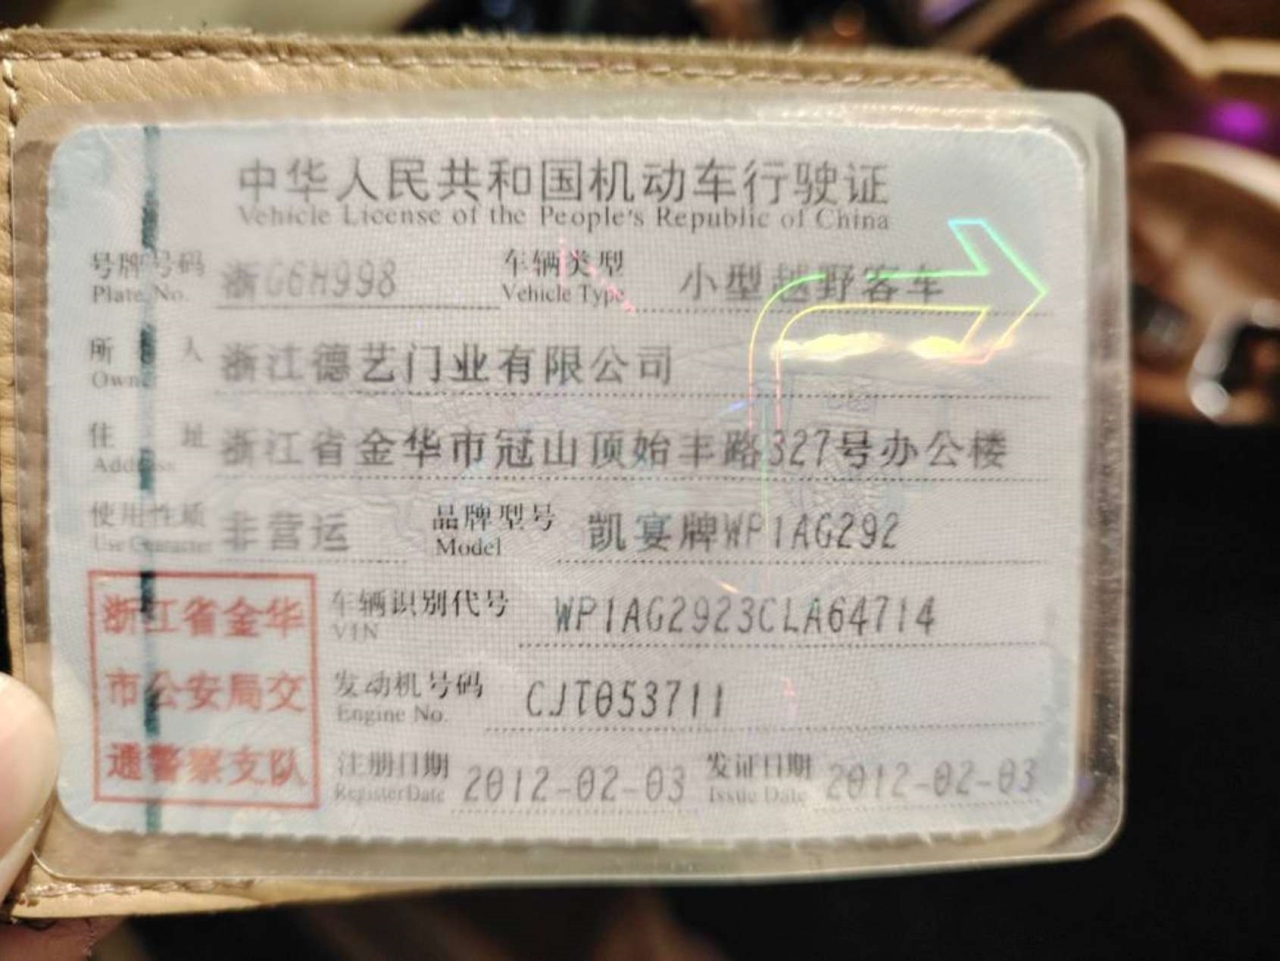 中华人民共和国机动车行驶证
Vehicle License of the People's Republic of China
号牌号码 浙G6H998 车辆类型 小型越野客车
Plate No. Vehicle Type
所有人 浙江德艺门业有限公司
Owner
住址 浙江省金华市冠山顶始丰路327号办公楼
Address
使用性质 非营运 品牌型号 凯宴牌WP1AG292
Use Character Model
浙江省金华
市公安局交
通警察支队
车辆识别代号 WP1AG2923CLA64714
VIN
发动机号码 CJT053711
Engine No.
注册日期 2012-02-03 发证日期 2012-02-03
Register Date Issue Date